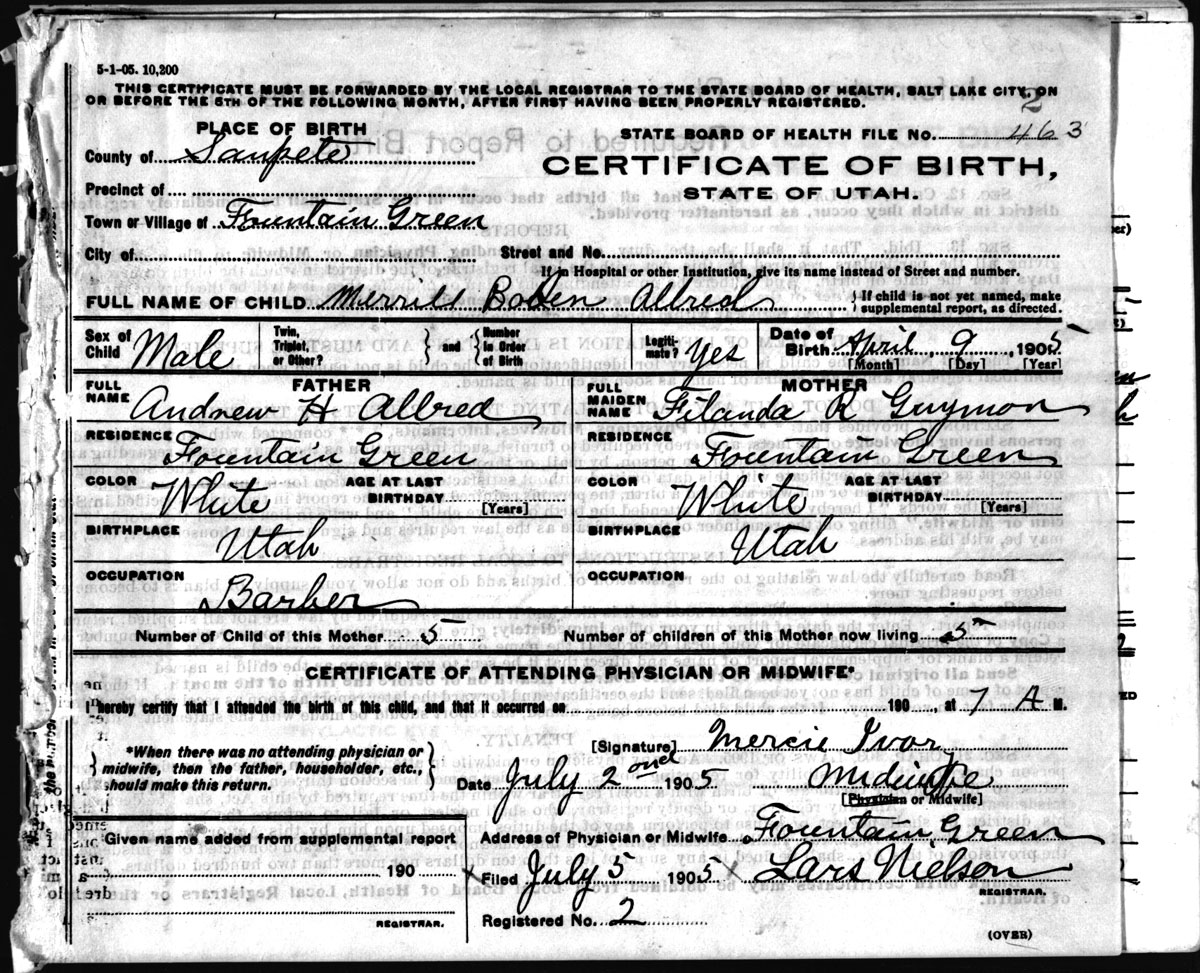 5-1-05. 10,200
THIS CERTIFICATE MUST BE FORWARDED BY THE LOCAL REGISTRAR TO THE STATE BOARD OF HEALTH, SALT LAKE CITY, ON
OR BEFORE THE 5TH OF THE FOLLOWING MONTH, AFTER FIRST HAVING BEEN PROPERLY REGISTERED.
2
PLACE OF BIRTH
STATE BOARD OF HEALTH FILE No. 463
County of Sanpete
CERTIFICATE OF BIRTH,
STATE OF UTAH.
Precinct of
Town or Village of Fountain Green
City of Street and No.
If in Hospital or other Institution, give its name instead of Street and number.
FULL NAME OF CHILD Merrill Boden Allred { If child is not yet named, make
supplemental report, as directed.
Sex of Child Male Twin, Triplet, or Other? } and { Number in Order of Birth Legiti-mate? Yes Date of Birth April, 9, 1905
[Month] [Day] [Year]
FATHER MOTHER
FULL NAME Andrew H Allred FULL MAIDEN NAME Filanda R Guymon
RESIDENCE Fountain Green RESIDENCE Fountain Green
COLOR White AGE AT LAST BIRTHDAY [Years] COLOR White AGE AT LAST BIRTHDAY [Years]
BIRTHPLACE Utah BIRTHPLACE Utah
OCCUPATION Barber OCCUPATION
Number of Child of this Mother 5 Number of children of this Mother now living 5
CERTIFICATE OF ATTENDING PHYSICIAN OR MIDWIFE*
I hereby certify that I attended the birth of this child, and that it occurred on 190 , at 7 A M.
{ *When there was no attending physician or
midwife, then the father, householder, etc.,
should make this return. }
[Signature] Mercie Ivory
Date July 2ond 1905 Midwife
[Physician or Midwife]
Given name added from supplemental report
190
REGISTRAR.
Address of Physician or Midwife Fountain Green
x Filed July 5 1905 x Lars Nielson
REGISTRAR.
Registered No. 2
(OVER)